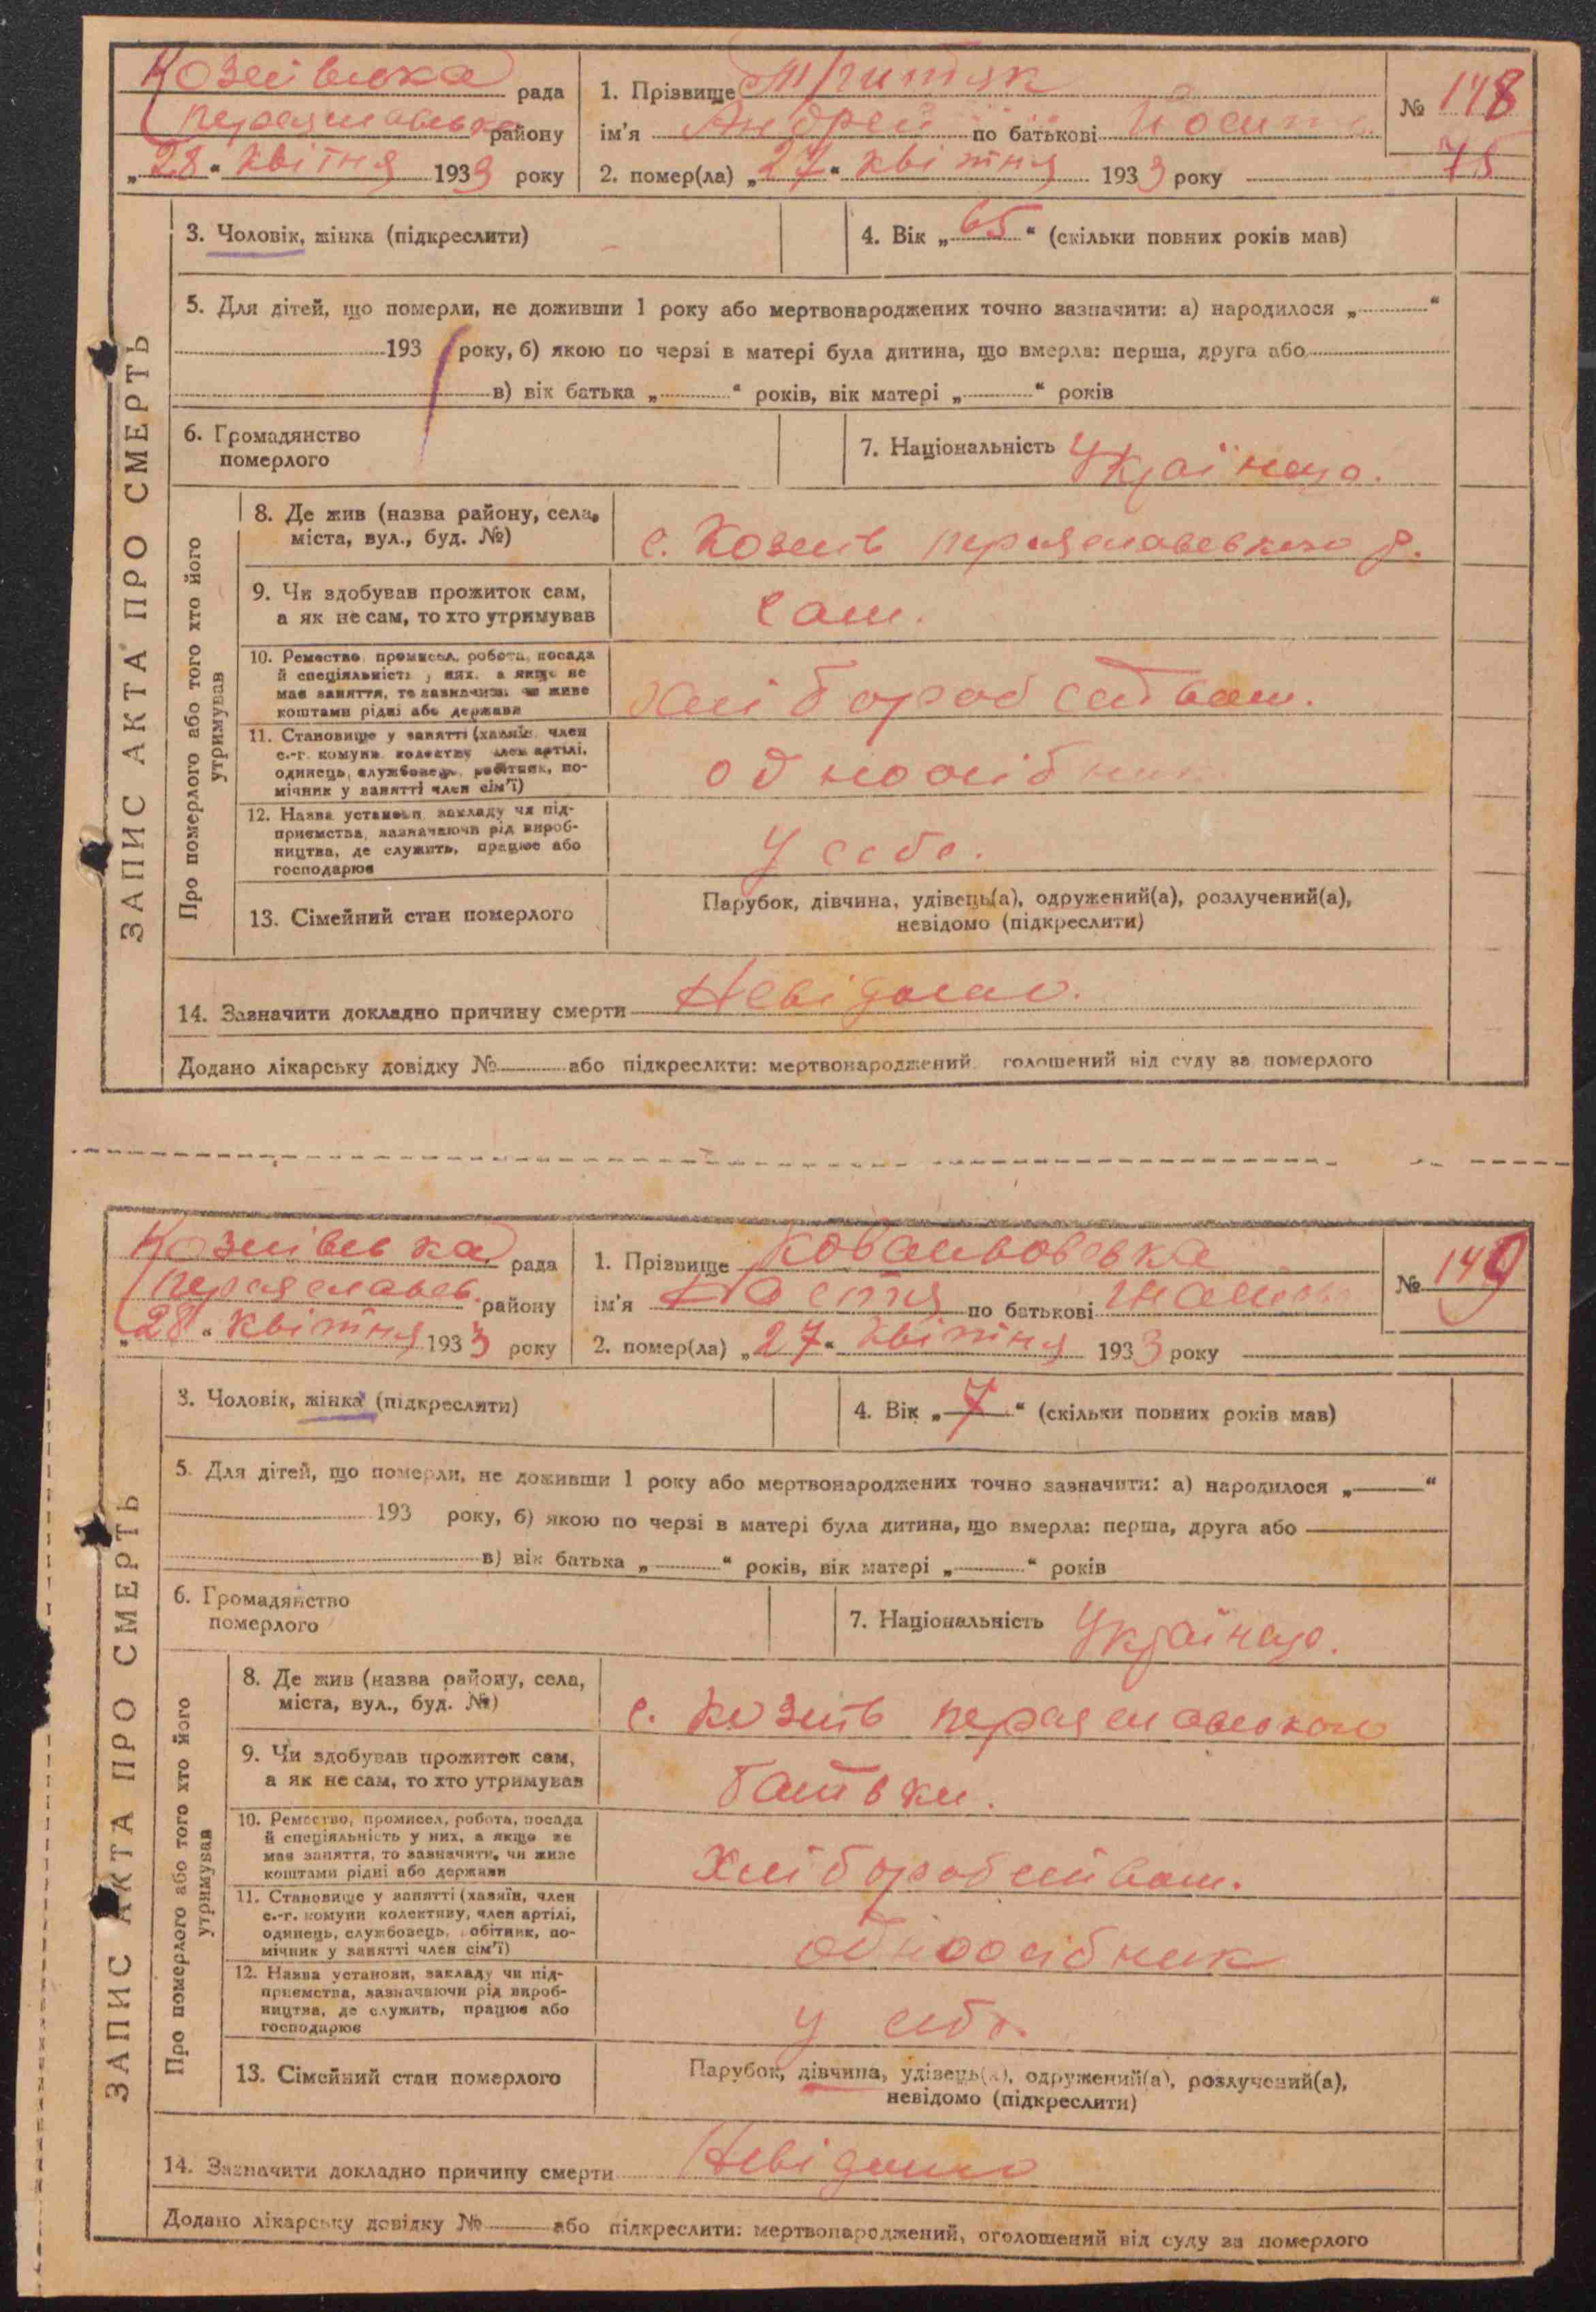 Козлівська рада
Переяславська району
„28“ квітня 1933 року
1. Прізвище
ім'я Андрей по батькові Йосип.
2. помер(ла) „27“ квітня 1933 року
№ 148
75
ЗАПИС АКТА ПРО СМЕРТЬ
3. Чоловік, жінка (підкреслити)
4. Вік „65“ (скільки повних років мав)
5. Для дітей, що померли, не доживши 1 року або мертвонароджених точно зазначити: а) народилося „ “
193 року, б) якою по черзі в матері була дитина, що вмерла: перша, друга або
в) вік батька „ “ років, вік матері „ “ років
6. Громадянство
померлого
7. Національність Українец.
Про померлого або того хто його
утримував
8. Де жив (назва району, села,
міста, вул., буд. №)
с. Козлів переяславського р.
9. Чи здобував прожиток сам,
а як не сам, то хто утримував
сам.
10. Ремество, промисел, робота, посада
й спеціяльність у них, а якщо не
має заняття, то зазначити, чи живе
коштами рідні або держави
Хліборобством.
11. Становище у занятті (хазяїн, член
с.-г. комуни, колективу, член артілі,
одинець, службовець, робітник, по-
мічник у занятті член сім'ї)
одноосібник
12. Назва установи, закладу чи під-
приємства, зазначаючи рід вироб-
ництва, де служить, працює або
господарює
У себе.
13. Сімейний стан померлого
Парубок, дівчина, удівець(а), одружений(а), розлучений(а),
невідомо (підкреслити)
14. Зазначити докладно причину смерти Невідомо.
Додано лікарську довідку № або підкреслити: мертвонароджений голошений від суду за померлого
Козлівська рада
Переяславсь. району
„28“ квітня 1933 року
1. Прізвище Ковальовська
ім'я Настя по батькові
2. помер(ла) „27“ квітня 1933 року
№ 149
ЗАПИС АКТА ПРО СМЕРТЬ
3. Чоловік, жінка (підкреслити)
4. Вік „7“ (скільки повних років мав)
5. Для дітей, що померли, не доживши 1 року або мертвонароджених точно зазначити: а) народилося „ “
193 року, б) якою по черзі в матері була дитина, що вмерла: перша, друга або
в) вік батька „ “ років, вік матері „ “ років
6. Громадянство
померлого
7. Національність Українец.
Про померлого або того хто його
утримував
8. Де жив (назва району, села,
міста, вул., буд. №)
с. Козлів переяславського
9. Чи здобував прожиток сам,
а як не сам, то хто утримував
батьки.
10. Ремество, промисел, робота, посада
й спеціяльність у них, а якщо не
має заняття, то зазначити, чи живе
коштами рідні або держави
Хліборобством.
11. Становище у занятті (хазяїн, член
с.-г. комуни колективу, член артілі,
одинець, службовець, робітник, по-
мічник у занятті член сім'ї)
одноосібник
12. Назва установи, закладу чи під-
приємства, зазначаючи рід вироб-
ництва, де служить, працює або
господарює
у себе.
13. Сімейний стан померлого
Парубок, дівчина, удівець(а), одружений(а), розлучений(а),
невідомо (підкреслити)
14. Зазначити докладно причину смерти Невідомо
Додано лікарську довідку № або підкреслити: мертвонароджений, оголошений від суду за померлого